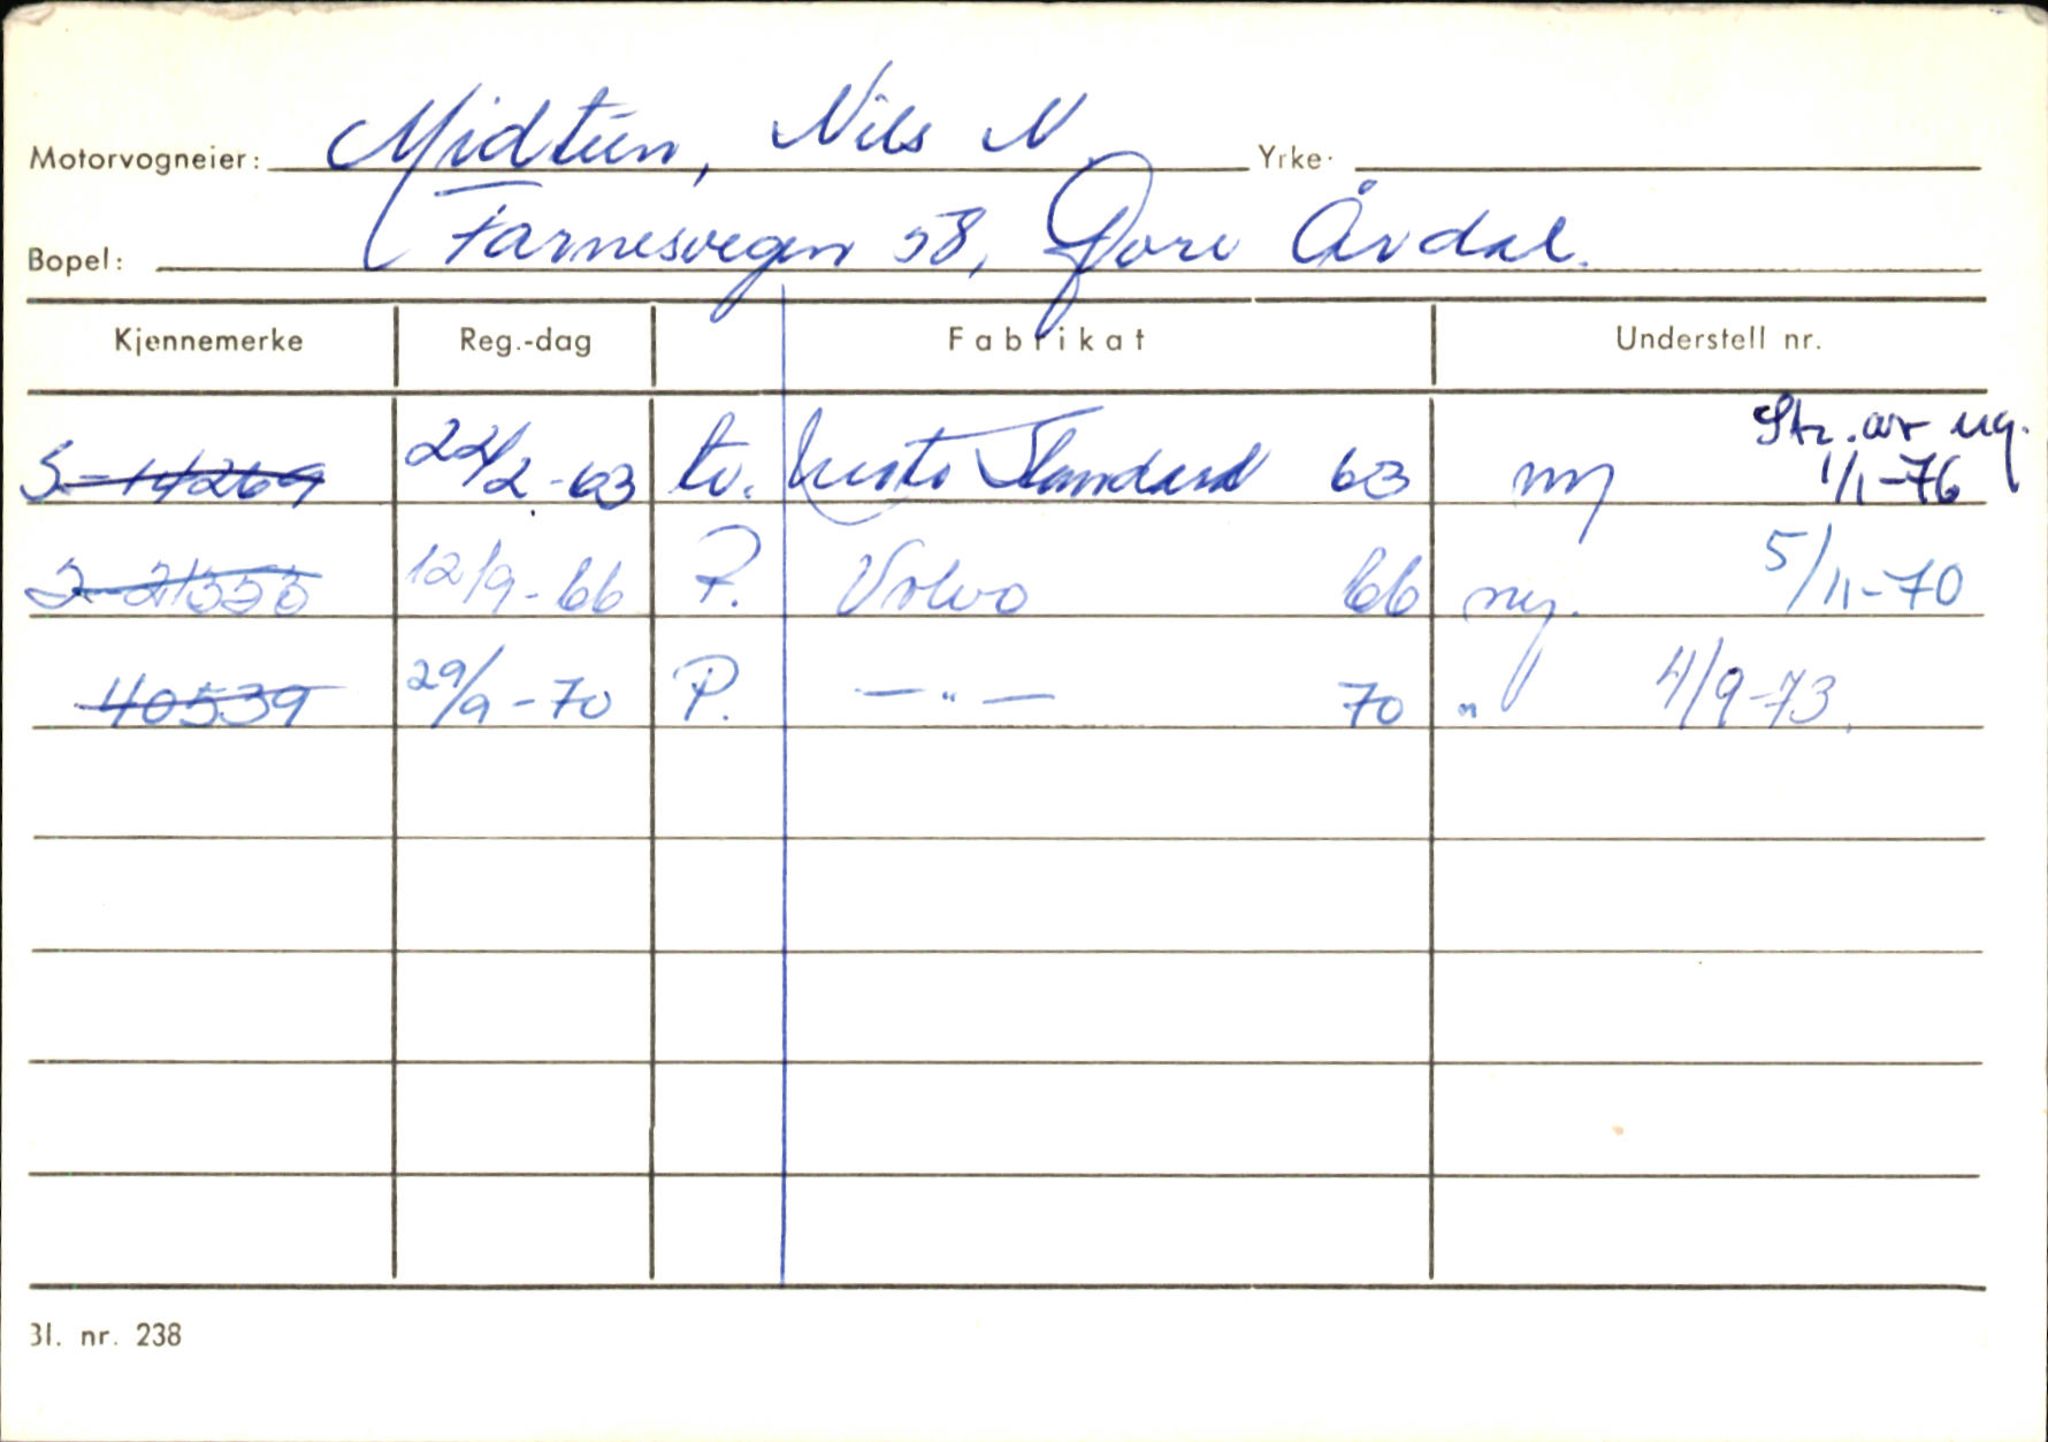 Motorvogneier: Midtun, Nils N. Yrke:
Bopel: Farnesvegen 58, Øvre Årdal.
Kjennemerke Reg.-dag Fabrikat Understell nr.
Str. av reg.
S-14269 22/2-63 Standard 63 ny 1/1-76
12/9-66 P. Volvo 66 ny. 5/11-70
40539 29/9-70 P. —"— 70 " 4/9-73.
Bl. nr. 238